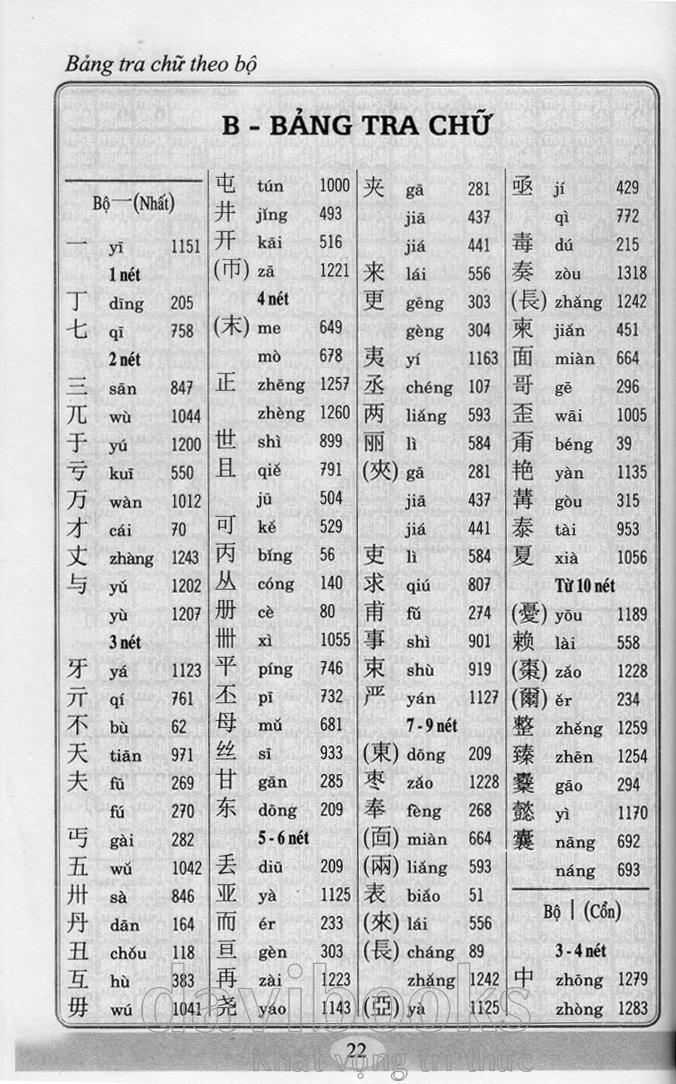 Bảng tra chữ theo bộ
B - BẢNG TRA CHỮ
Bộ 一 (Nhất)
一 yī 1151
1 nét
丁 dīng 205
七 qī 758
2 nét
三 sān 847
兀 wù 1044
于 yú 1200
亏 kuī 550
万 wàn 1012
才 cái 70
丈 zhàng 1243
与 yǔ 1202
yù 1207
3 nét
牙 yá 1123
亓 qí 761
不 bù 62
天 tiān 971
夫 fū 269
fú 270
丐 gài 282
五 wǔ 1042
卅 sà 846
丹 dān 164
丑 chǒu 118
互 hù 383
毋 wú 1041
屯 tún 1000
井 jǐng 493
开 kāi 516
(帀) zā 1221
4 nét
(末) me 649
mò 678
正 zhēng 1257
zhèng 1260
世 shì 899
且 qiě 791
jū 504
可 kě 529
丙 bǐng 56
丛 cóng 140
册 cè 80
卌 xì 1055
平 píng 746
丕 pī 732
母 mǔ 681
丝 sī 933
甘 gān 285
东 dōng 209
5 - 6 nét
丢 diū 209
亚 yà 1125
而 ér 233
亘 gèn 303
再 zài 1223
尧 yáo 1143
夹 gā 281
jiā 437
jiá 441
来 lái 556
更 gēng 303
gèng 304
夷 yí 1163
丞 chéng 107
两 liǎng 593
丽 lì 584
(夾) gā 281
jiā 437
jiá 441
吏 lì 584
求 qiú 807
甫 fǔ 274
事 shì 901
束 shù 919
严 yán 1127
7 - 9 nét
(東) dōng 209
枣 zǎo 1228
奉 fèng 268
(面) miàn 664
(兩) liǎng 593
表 biǎo 51
(來) lái 556
(長) cháng 89
zhǎng 1242
(亞) yà 1125
亟 jí 429
qì 772
毒 dú 215
奏 zòu 1318
(長) zhǎng 1242
柬 jiǎn 451
面 miàn 664
哥 gē 296
歪 wāi 1005
甭 béng 39
艳 yàn 1135
冓 gòu 315
泰 tài 953
夏 xià 1056
Từ 10 nét
(憂) yōu 1189
赖 lài 558
(棗) zǎo 1228
(爾) ěr 234
整 zhěng 1259
臻 zhēn 1254
櫜 gāo 294
懿 yì 1170
囊 nāng 692
náng 693
Bộ丨(Cổn)
3 - 4 nét
中 zhōng 1279
zhòng 1283
davibooks
22
khát vọng tri thức